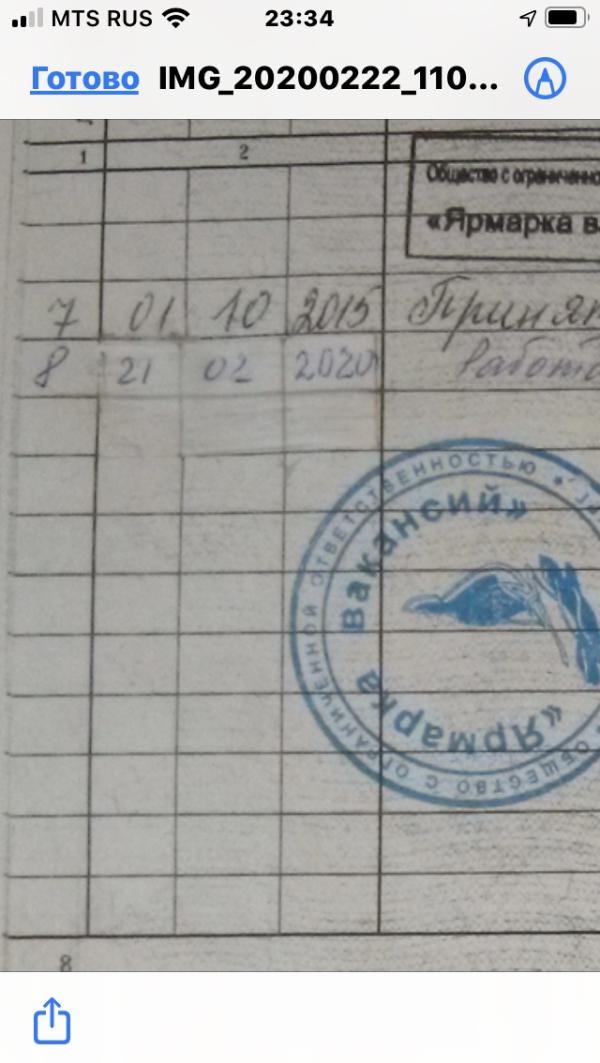 MTS RUS 23:34
Готово IMG_20200222_110...
1 2
Общество с ограниченно
«Ярмарка в
7 01 10 2015 Принят
8 21 02 2020 Работ
ОБЩЕСТВО С ОГРАНИЧЕННОЙ ОТВЕТСТВЕННОСТЬЮ
«Ярмарка вакансий»
8